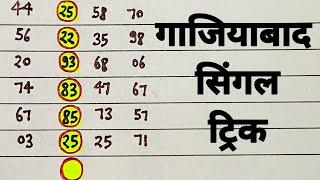 44 25 58 70
56 22 35 98
20 93 68 06
74 83 47 67
67 85 73 57
03 25 25 71
गाजियाबाद
सिंगल
ट्रिक